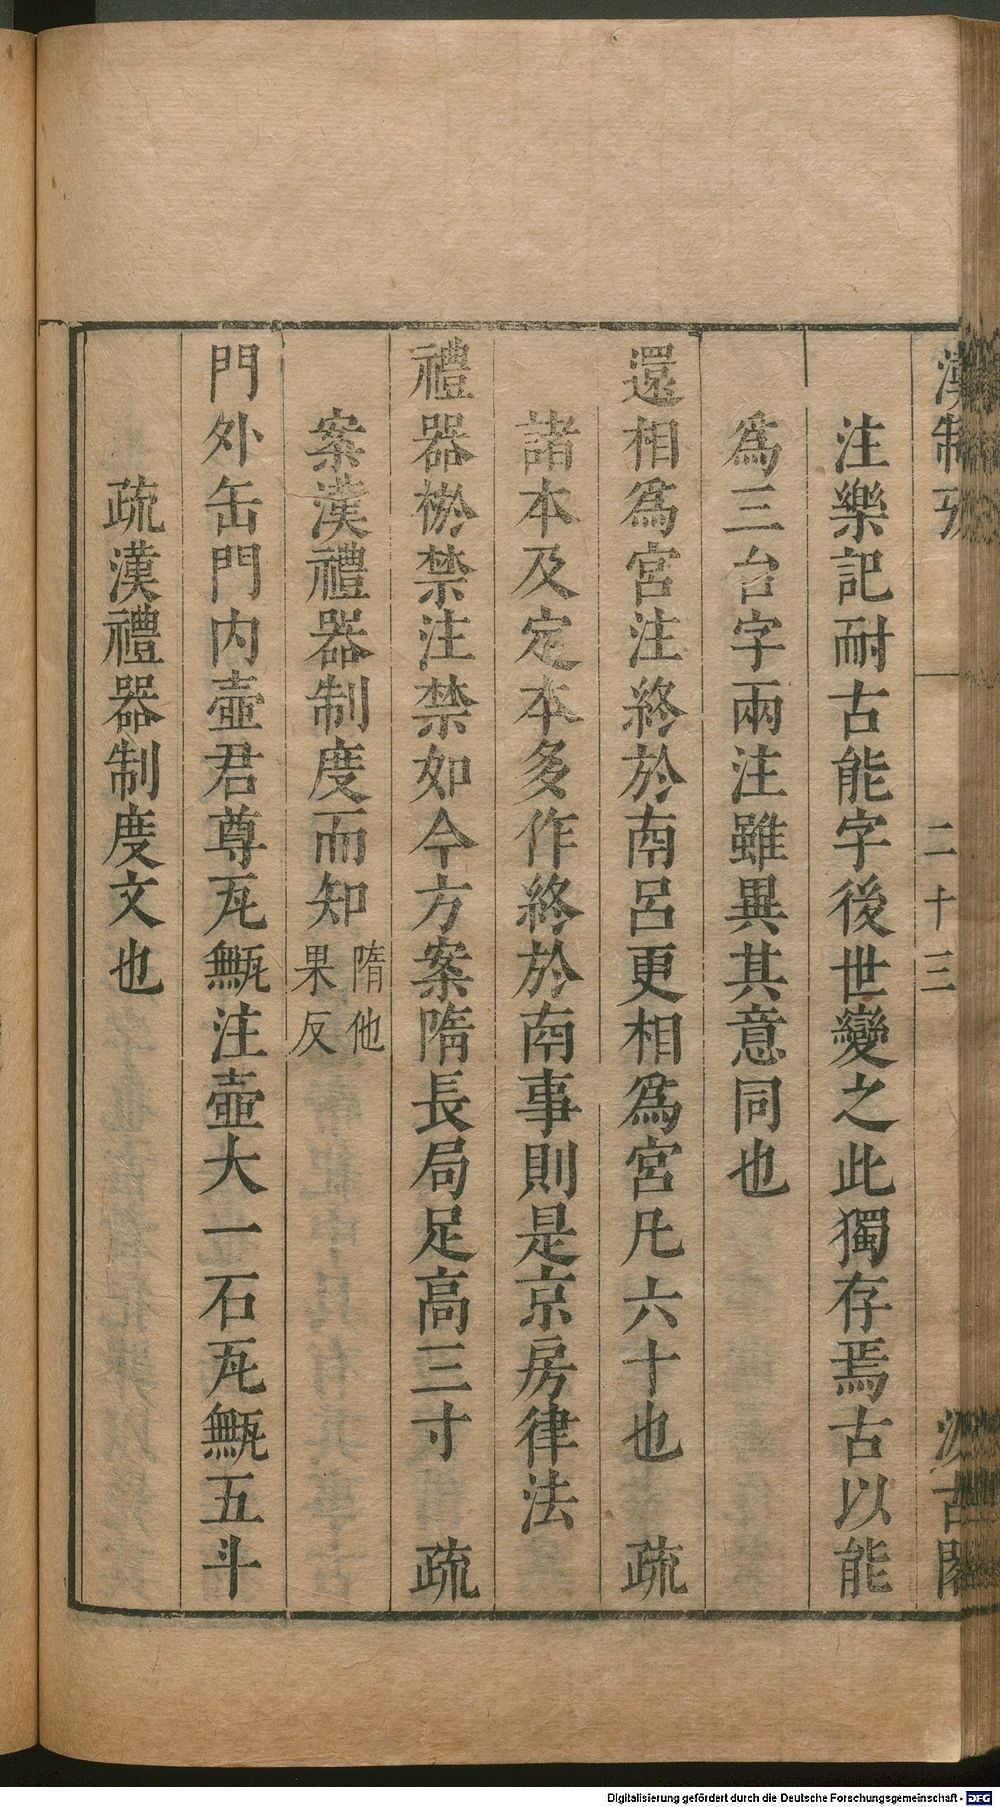 漢制攷 二十三 汲古閣
注樂記耐古能字後世變之此獨存焉古以能
爲三台字兩注雖異其意同也
還相爲宮注終於南呂更相爲宮凡六十也 疏
諸本及定本多作終於南事則是京房律法
禮器棜禁注禁如今方案隋長局足高三寸 疏
案漢禮器制度而知隋他果反
門外缶門內壺君尊瓦甒注壺大一石瓦甒五斗
疏漢禮器制度文也
Digitalisierung gefördert durch die Deutsche Forschungsgemeinschaft - DFG